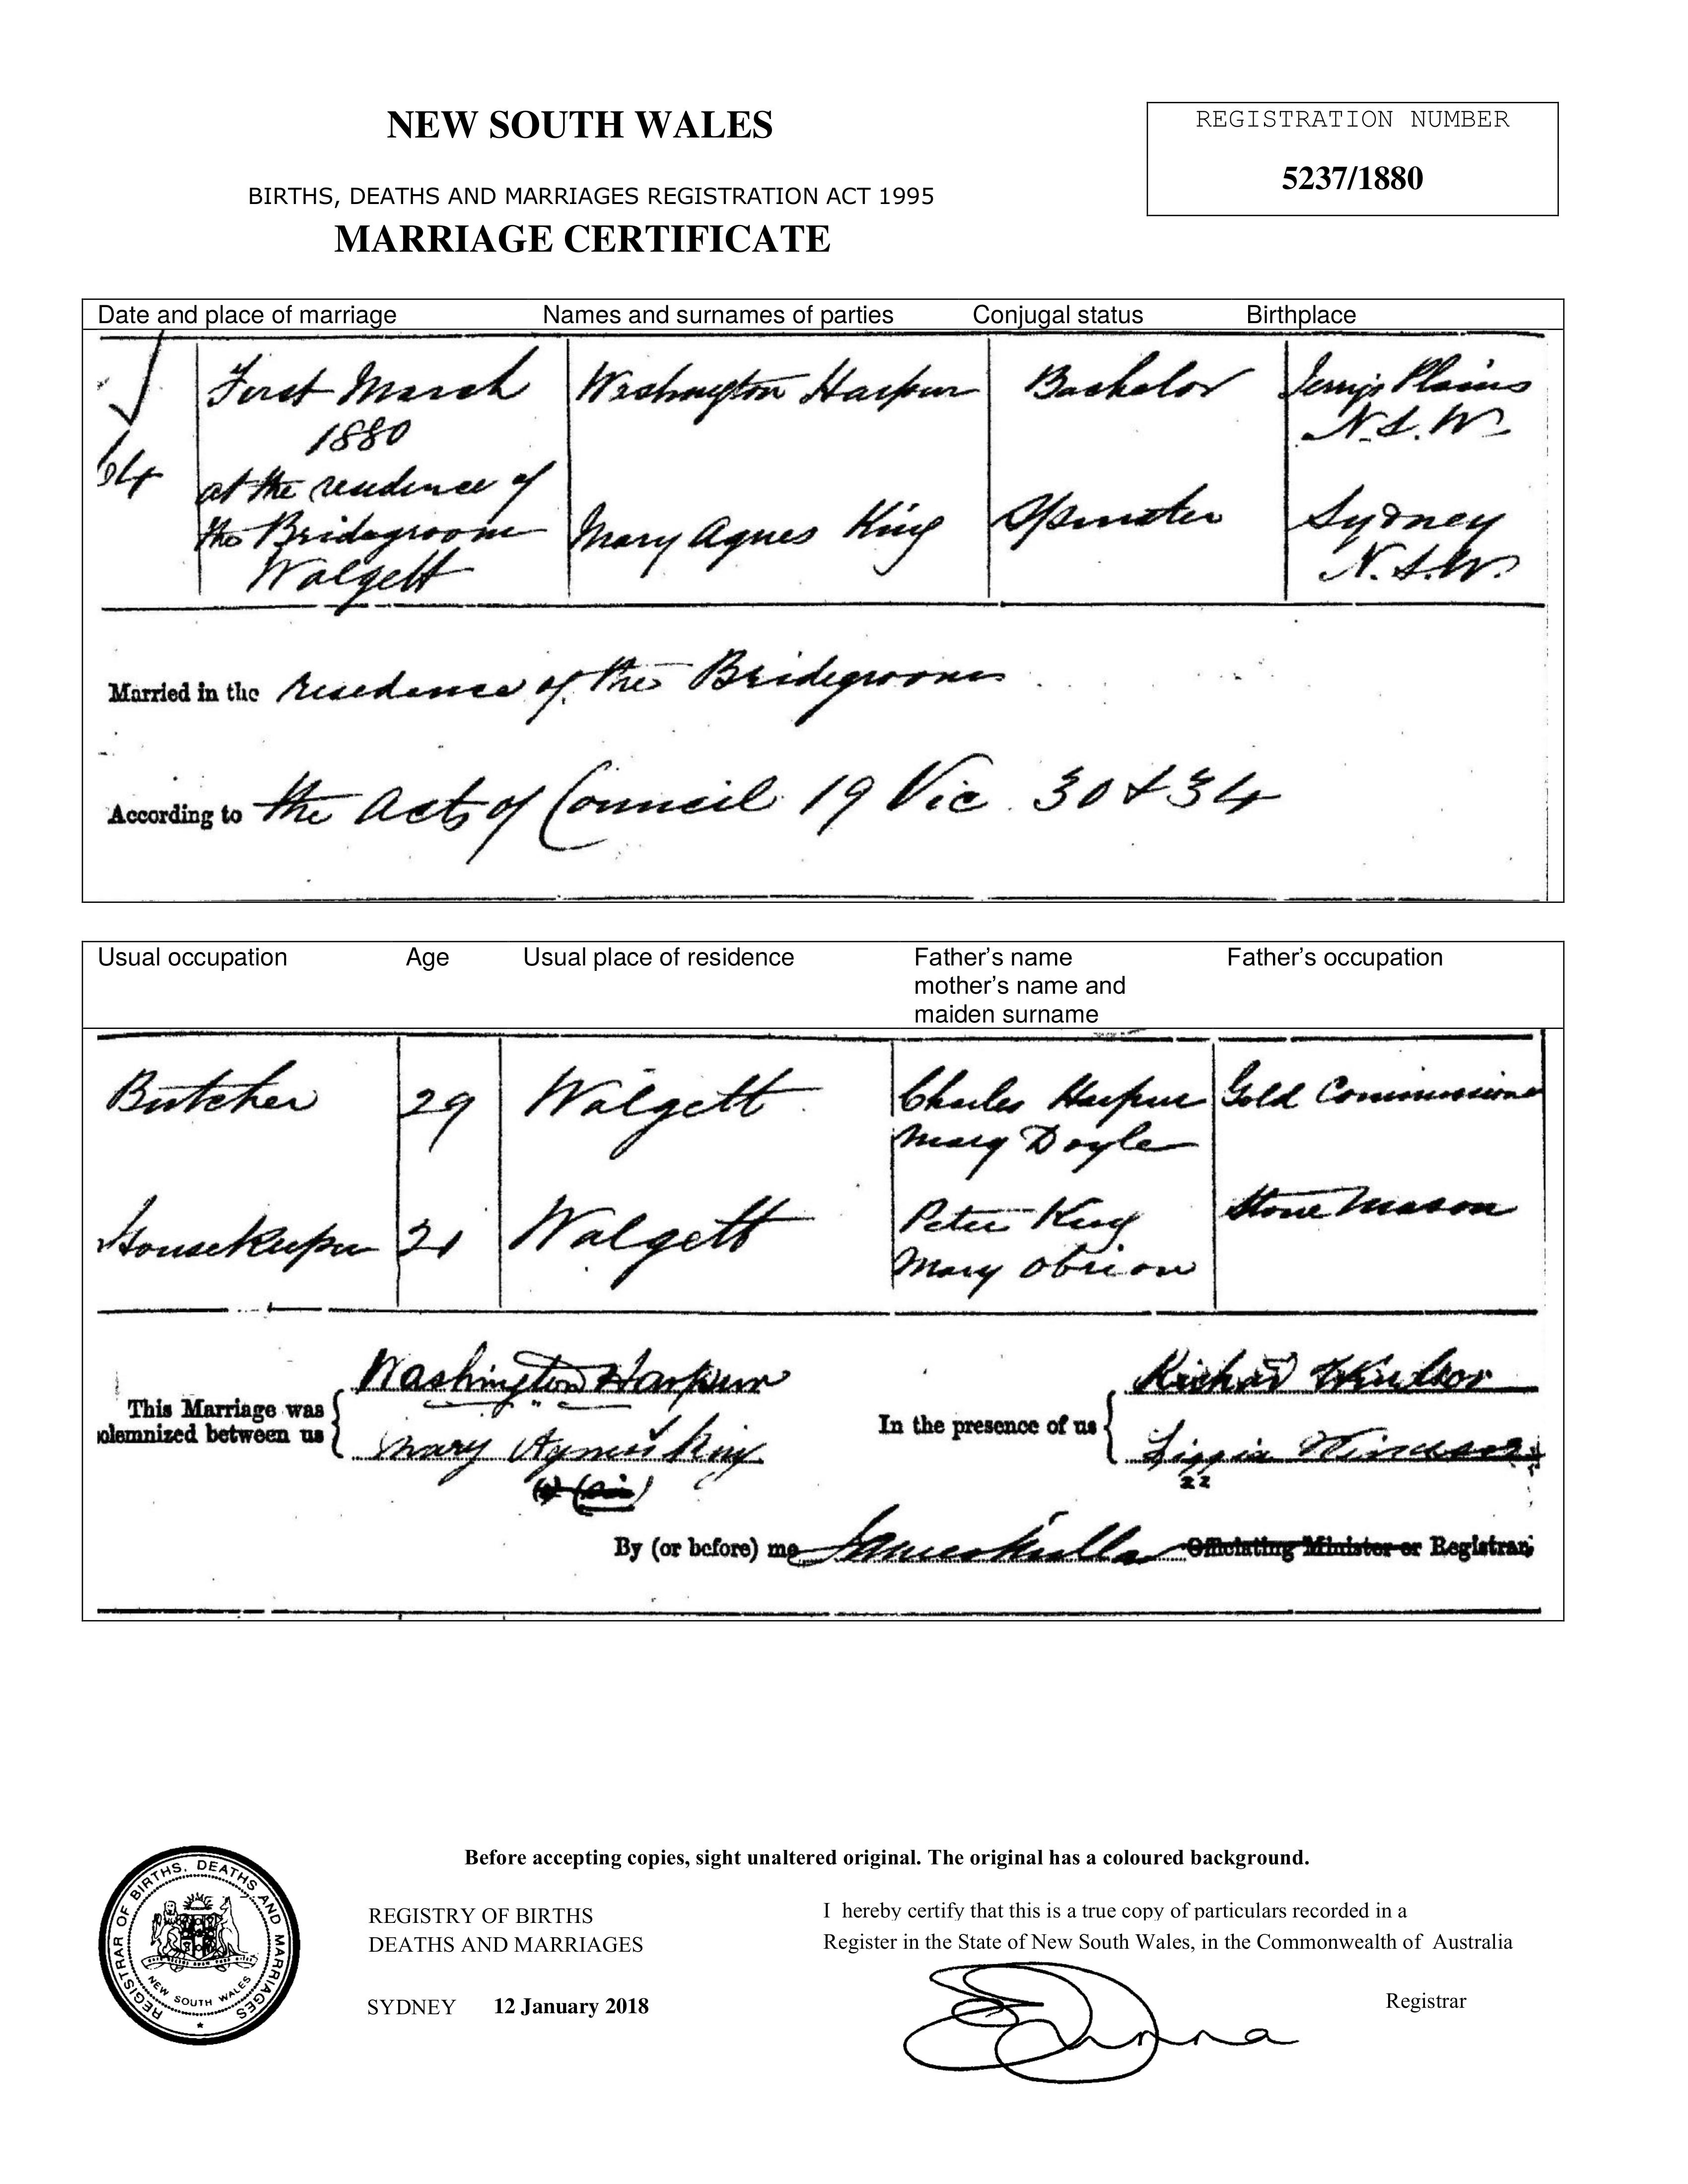 NEW SOUTH WALES
REGISTRATION NUMBER
5237/1880
BIRTHS, DEATHS AND MARRIAGES REGISTRATION ACT 1995
MARRIAGE CERTIFICATE
Date and place of marriage Names and surnames of parties Conjugal status Birthplace
First March Washington Harpur Bachelor Jerrys Plains
1880 N.S.W.
64 at the residence of
the Bridegroom Mary Agnes King Spinster Sydney
Walgett N.S.W.
Married in the residence of the Bridegroom
According to the Acts of Council 19 Vic. 30 & 34
Usual occupation Age Usual place of residence Father's name Father's occupation
mother's name and
maiden surname
Butcher 29 Walgett Charles Harpur Gold Commissioner
Mary Doyle
Housekeeper 21 Walgett Peter King Stone Mason
Mary Obrion
Washington Harpur Richard Windsor
This Marriage was
olemnized between us In the presence of us
Mary Agnes King Lizzie Windsor
22
By (or before) me Officiating Minister or Registrar
Before accepting copies, sight unaltered original. The original has a coloured background.
REGISTRAR OF BIRTHS, DEATHS AND MARRIAGES
NEW SOUTH WALES
REGISTRY OF BIRTHS
DEATHS AND MARRIAGES
I hereby certify that this is a true copy of particulars recorded in a
Register in the State of New South Wales, in the Commonwealth of Australia
SYDNEY 12 January 2018
Registrar